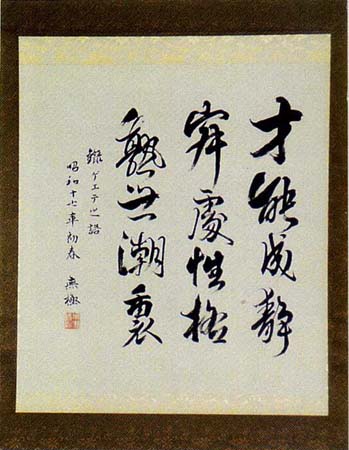 才能成静
処性格
熟世潮裏
録ゲエテ之語
昭和十七年初春 無極